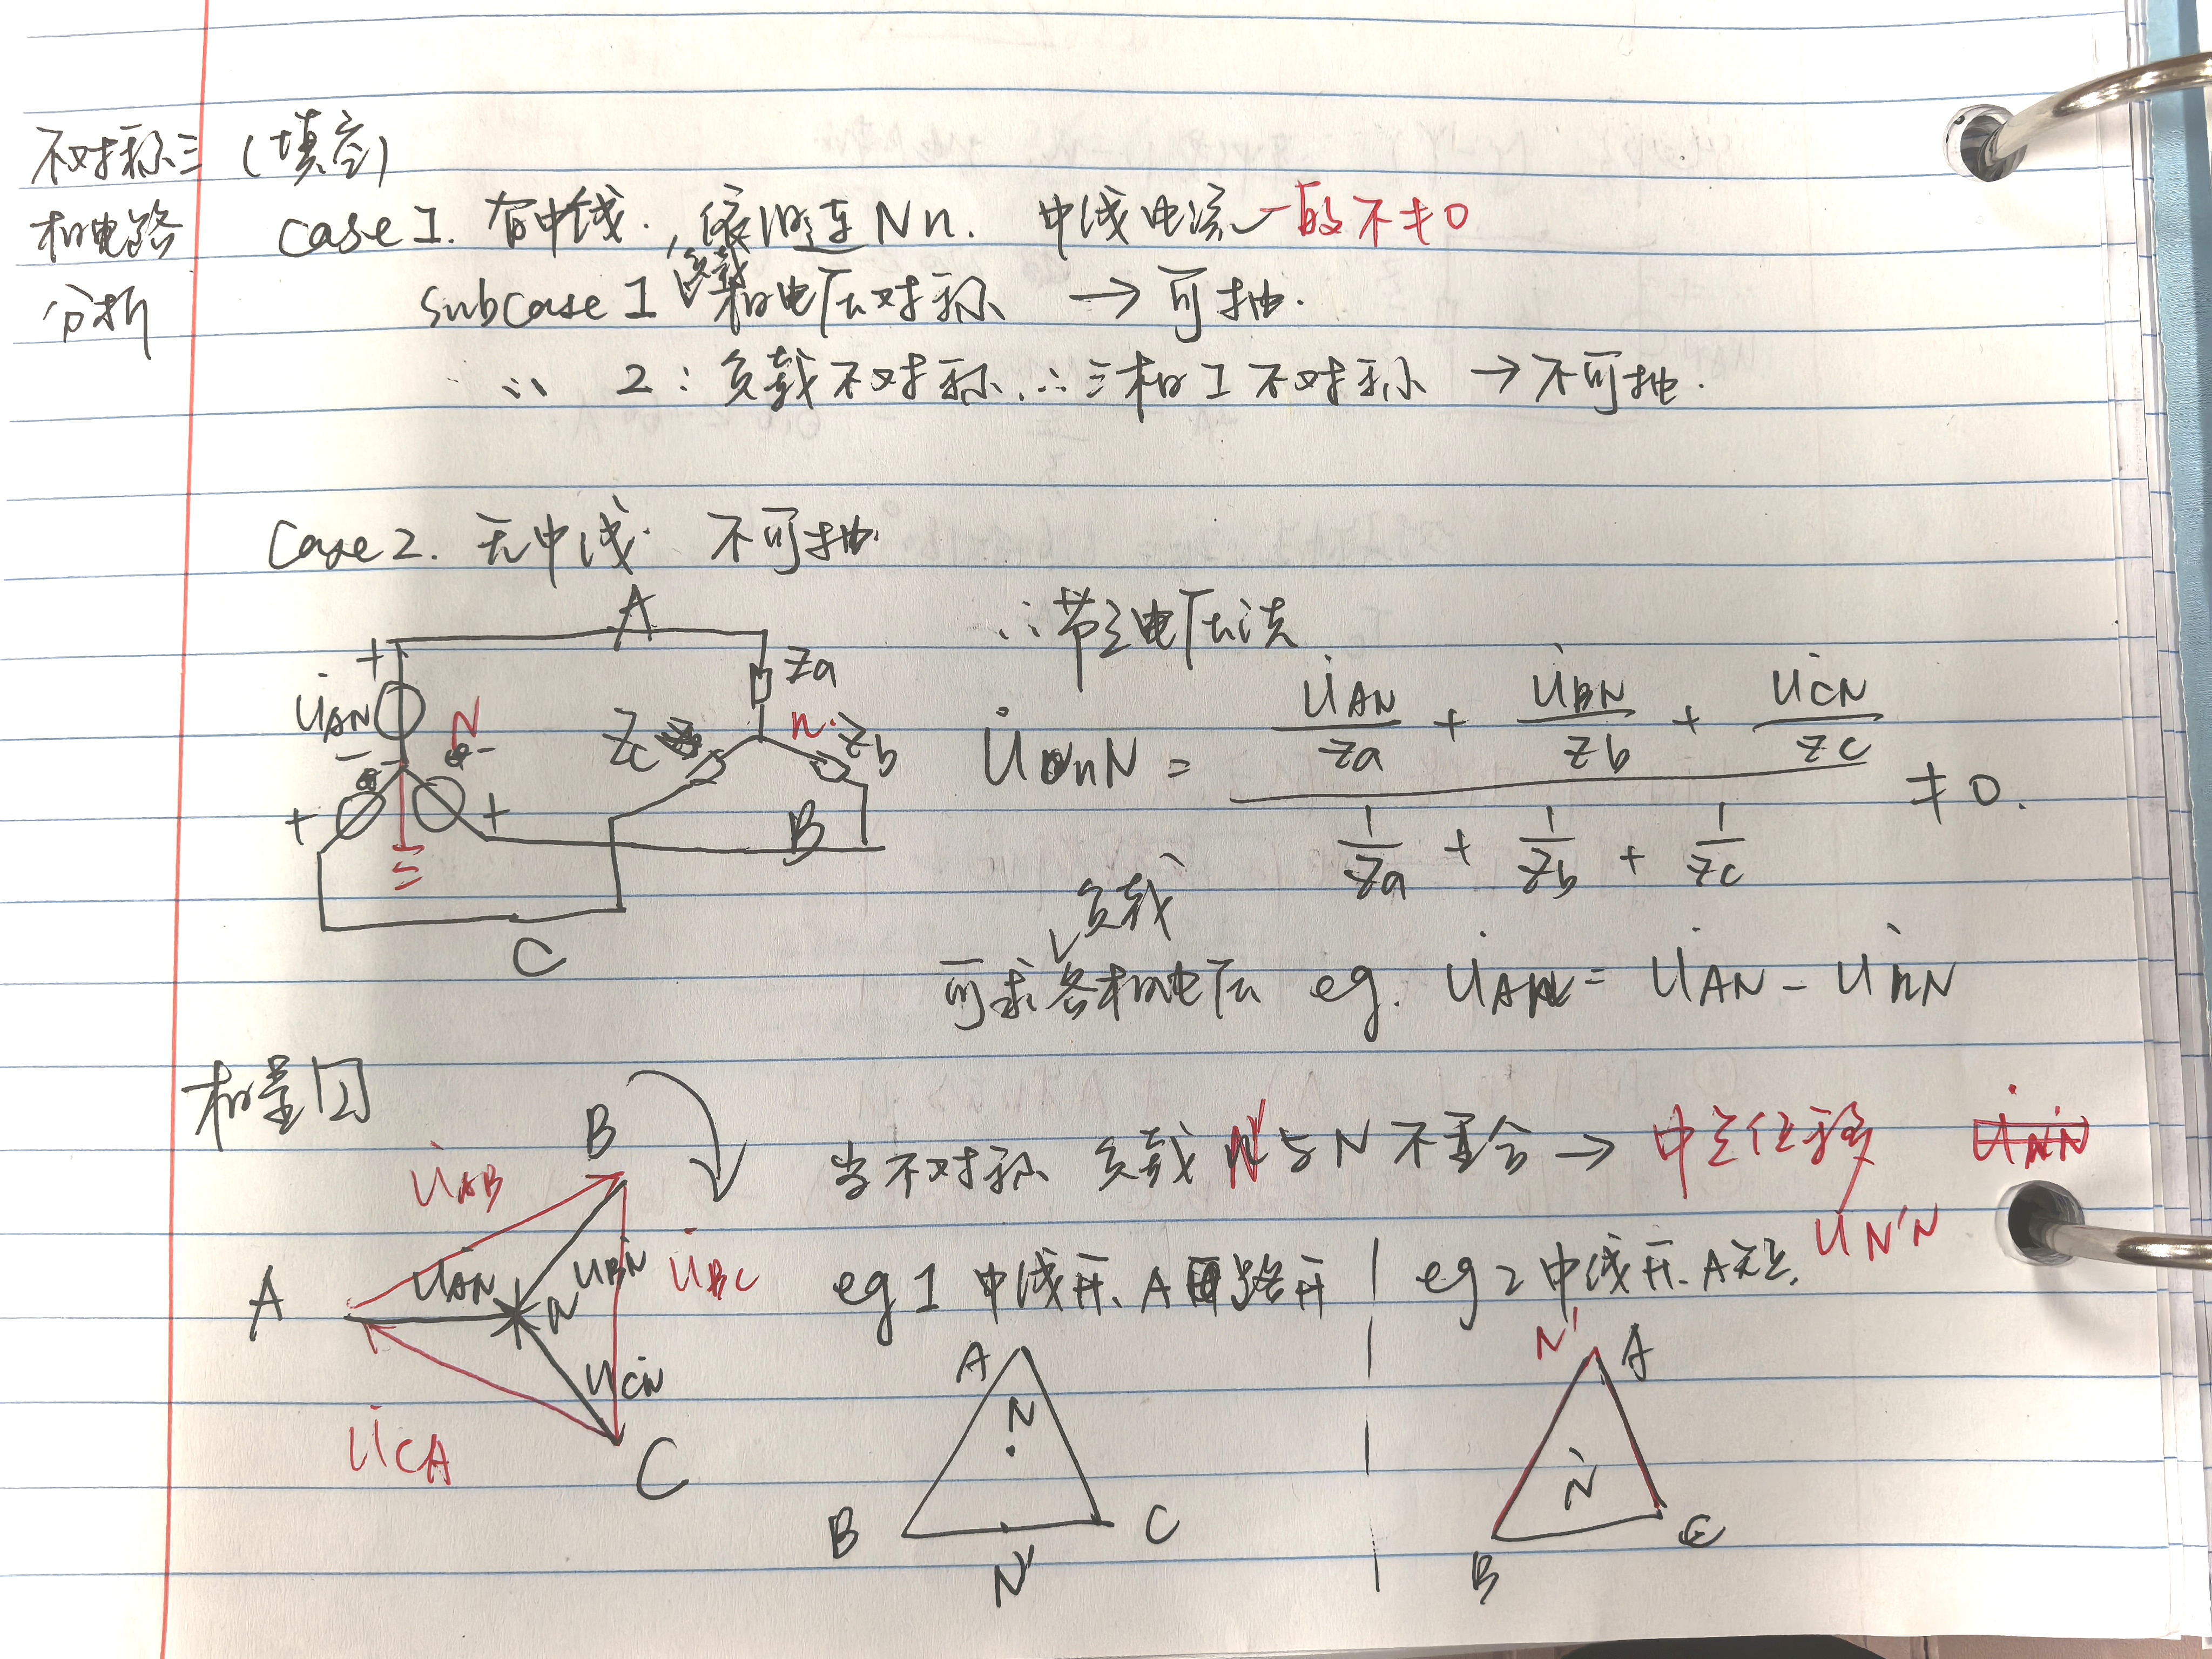 不对称三相电路分析
(填空)
case 1. 有中线. 依旧连Nn. 中线电流一般不为0
subcase 1 负载相电压对称 → 可抽.
〃 2: 负载不对称, ∴三相I不对称 → 不可抽.
Case 2. 无中线. 不可抽.
A
+
U̇AN
-
N
Za
n
Zc
Zb
+
+
B
C
∴节点电压法
U̇nN = (U̇AN/Za + U̇BN/Zb + U̇CN/Zc) / (1/Za + 1/Zb + 1/Zc) ≠ 0.
可求负载各相电压 eg. U̇An = U̇AN - U̇nN
相量图
B
U̇AB
U̇AN
U̇BN
U̇BC
A
N
U̇CN
U̇CA
C
当不对称 负载N'与N不重合 → 中点位移
U̇N'N
eg 1 中线开、A 路开
A
N
B
C
N'
eg 2 中线开、A
N'
A
N
B
C